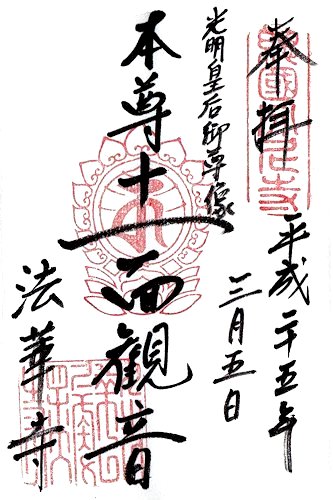 奉拝
平成二十五年
三月五日
光明皇后御尊像
本尊十一面観音
法華寺